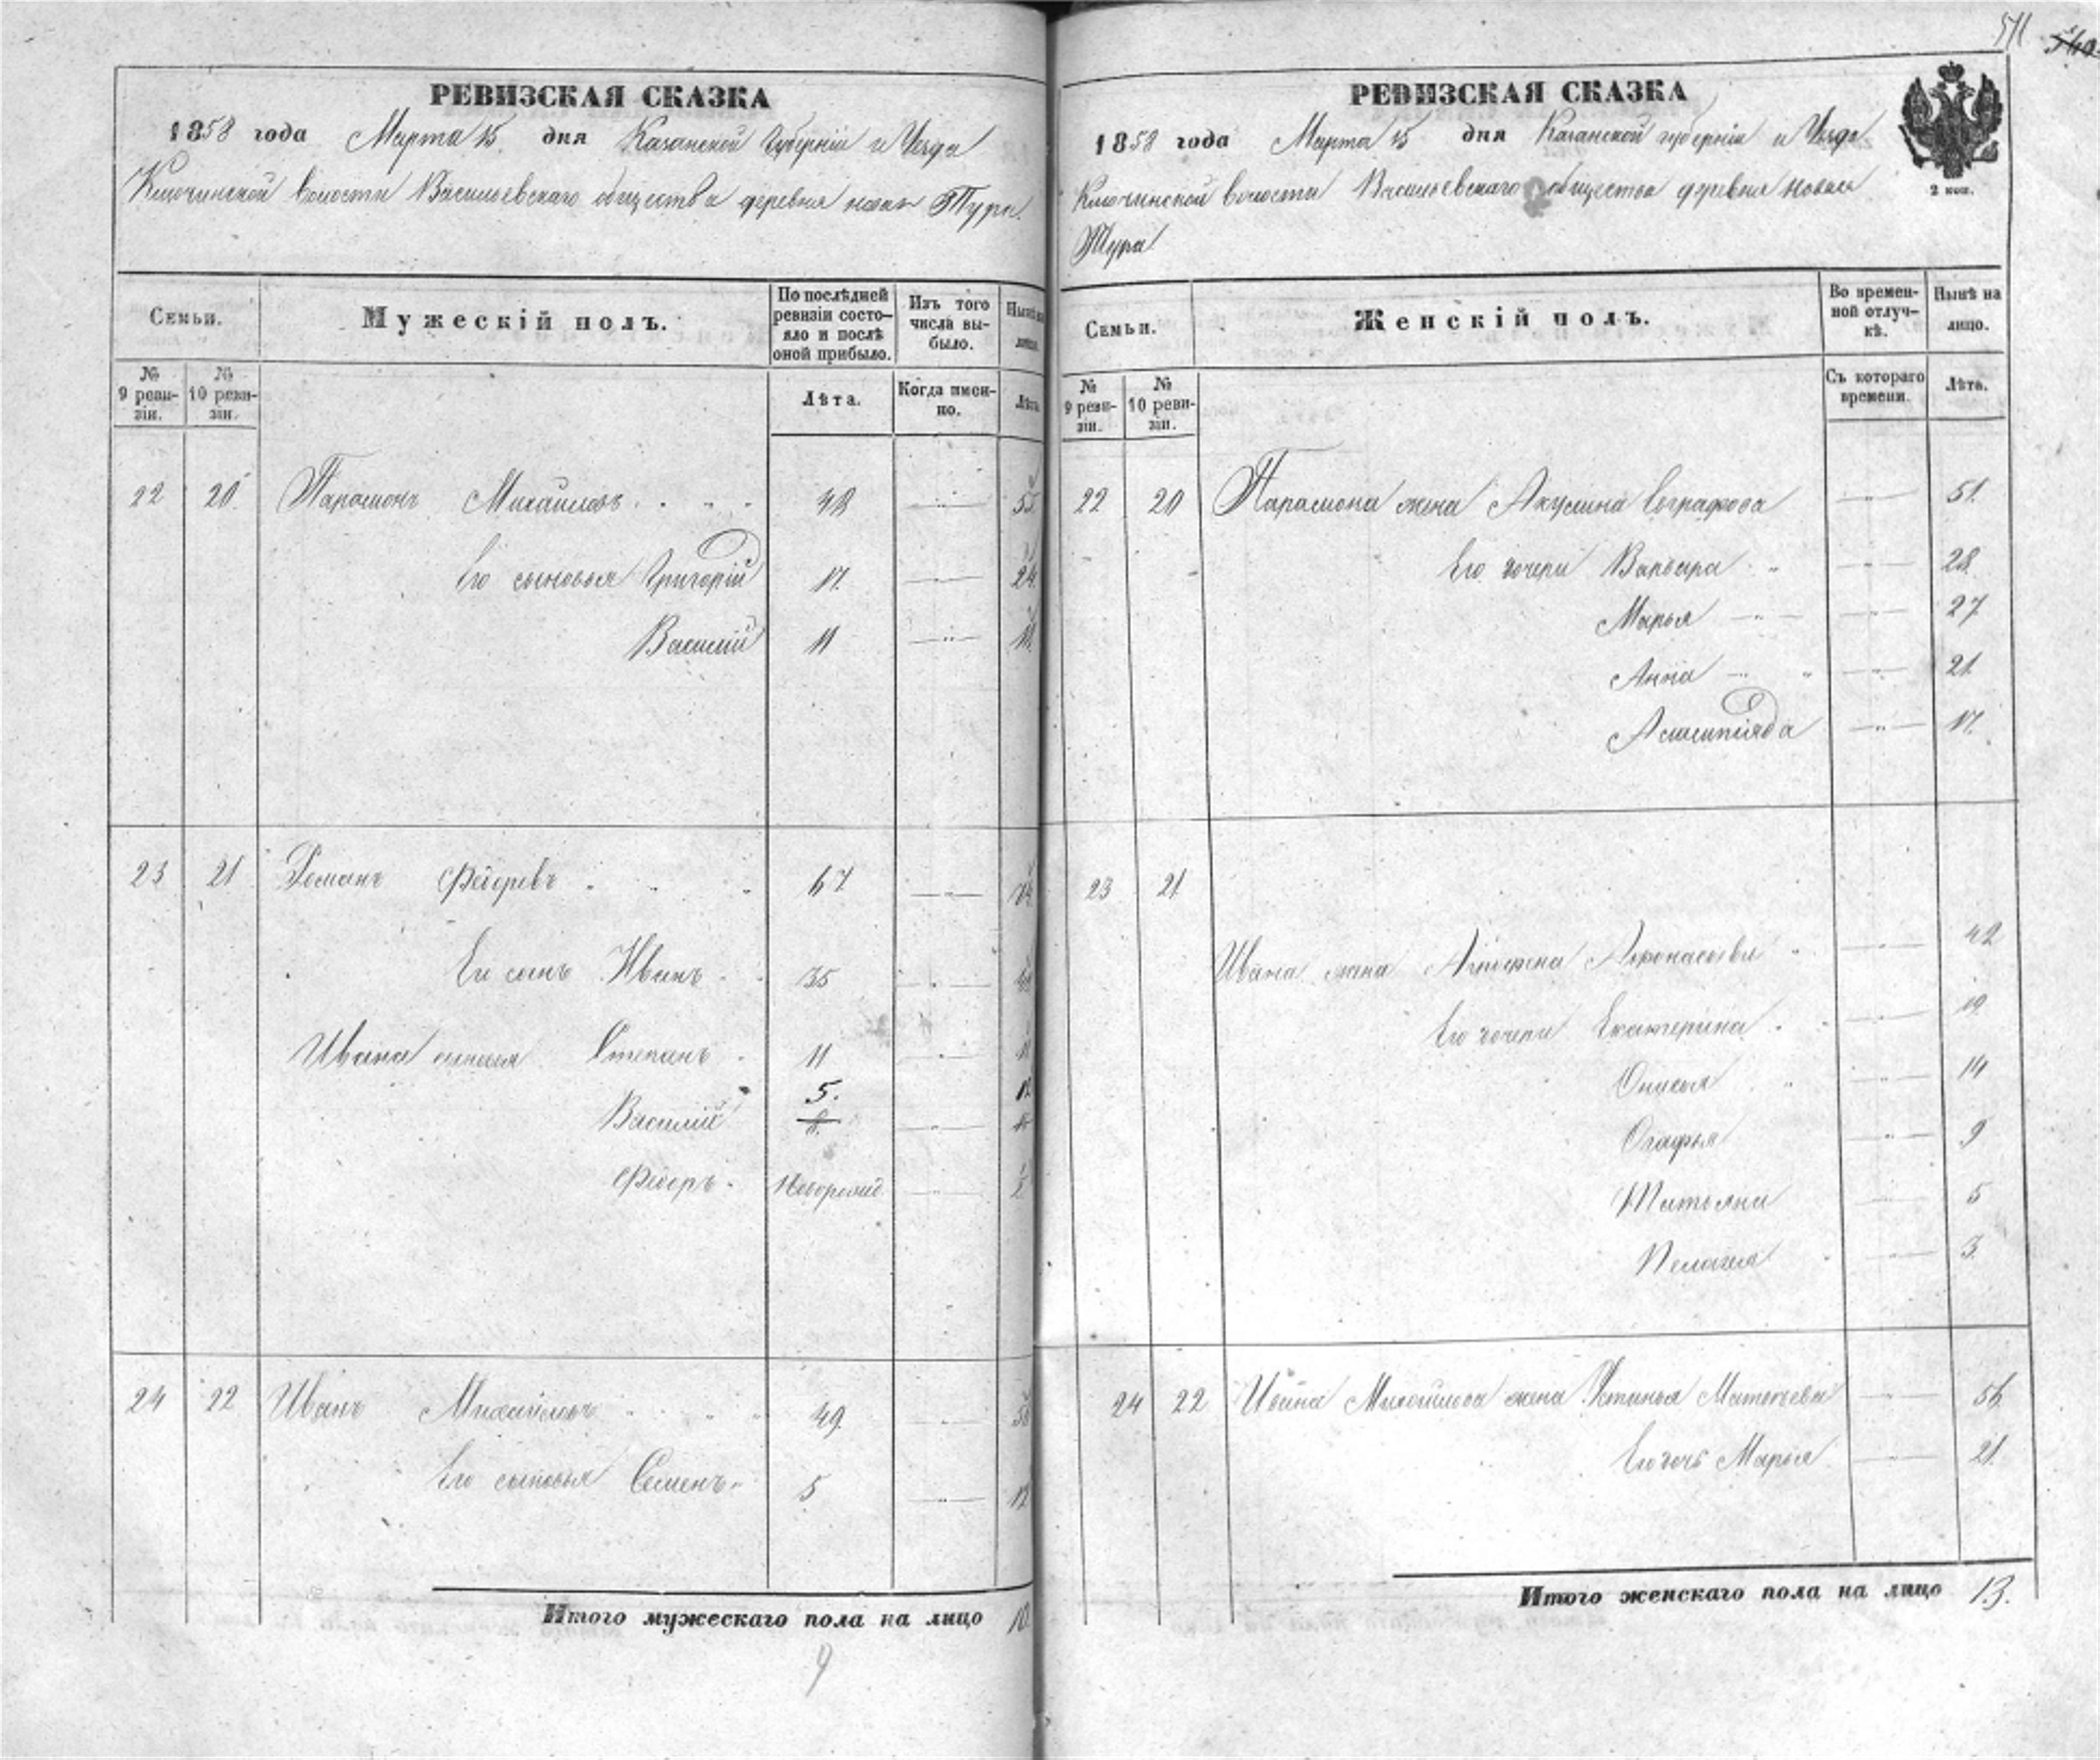 571
РЕВИЗСКАЯ СКАЗКА
1858 года Марта 15 дня Казанской Губерніи и Уезда
Ключинской волости Васильевскаго общества деревня новая Тура.
Семьи.
Мужескій полъ.
По послѣдней ревизіи состояло и послѣ оной прибыло.
Изъ того числа выбыло.
№ 9 ревизіи.
№ 10 ревизіи.
Лѣта.
Когда именно.
Лѣта
22 20 Парамонъ Михайловъ 48 55
Его сыновья Григорій 17. 24
Василій 11
23 21 Романъ Федоровъ 67
Его сынъ Иванъ 35
Ивана сыновья Степанъ 11
5. 12
Василій
Федоръ Новорожд.
24 22 Иванъ Михайловъ 49.
Его сыновья Семенъ 5 12
Итого мужескаго пола на лицо 10
9
РЕВИЗСКАЯ СКАЗКА
1858 года Марта 15 дня Казанской губерніи и Уезда
2 коп.
Ключинской волости Васильевскаго общества деревня новая
Тура
Семьи.
Женскій полъ.
Во временной отлучкѣ.
Нынѣ на лицо.
№ 9 ревизіи.
№ 10 ревизіи.
Съ котораго времени.
Лѣта.
22 20 Парамона жена Акулина Евграфова 51.
Его дочери Варвара 28.
Марья 27
Анна 21
17.
23 21.
Ивана жена Афонасьева 42
Его дочери Екатерина 19.
14
Огафья 9
Татьяна 5
Пелагея 3.
24 22 Ивана Михайлова жена Устинья Матвеева 56.
Его дочь Марья 21.
Итого женскаго пола на лицо 13.